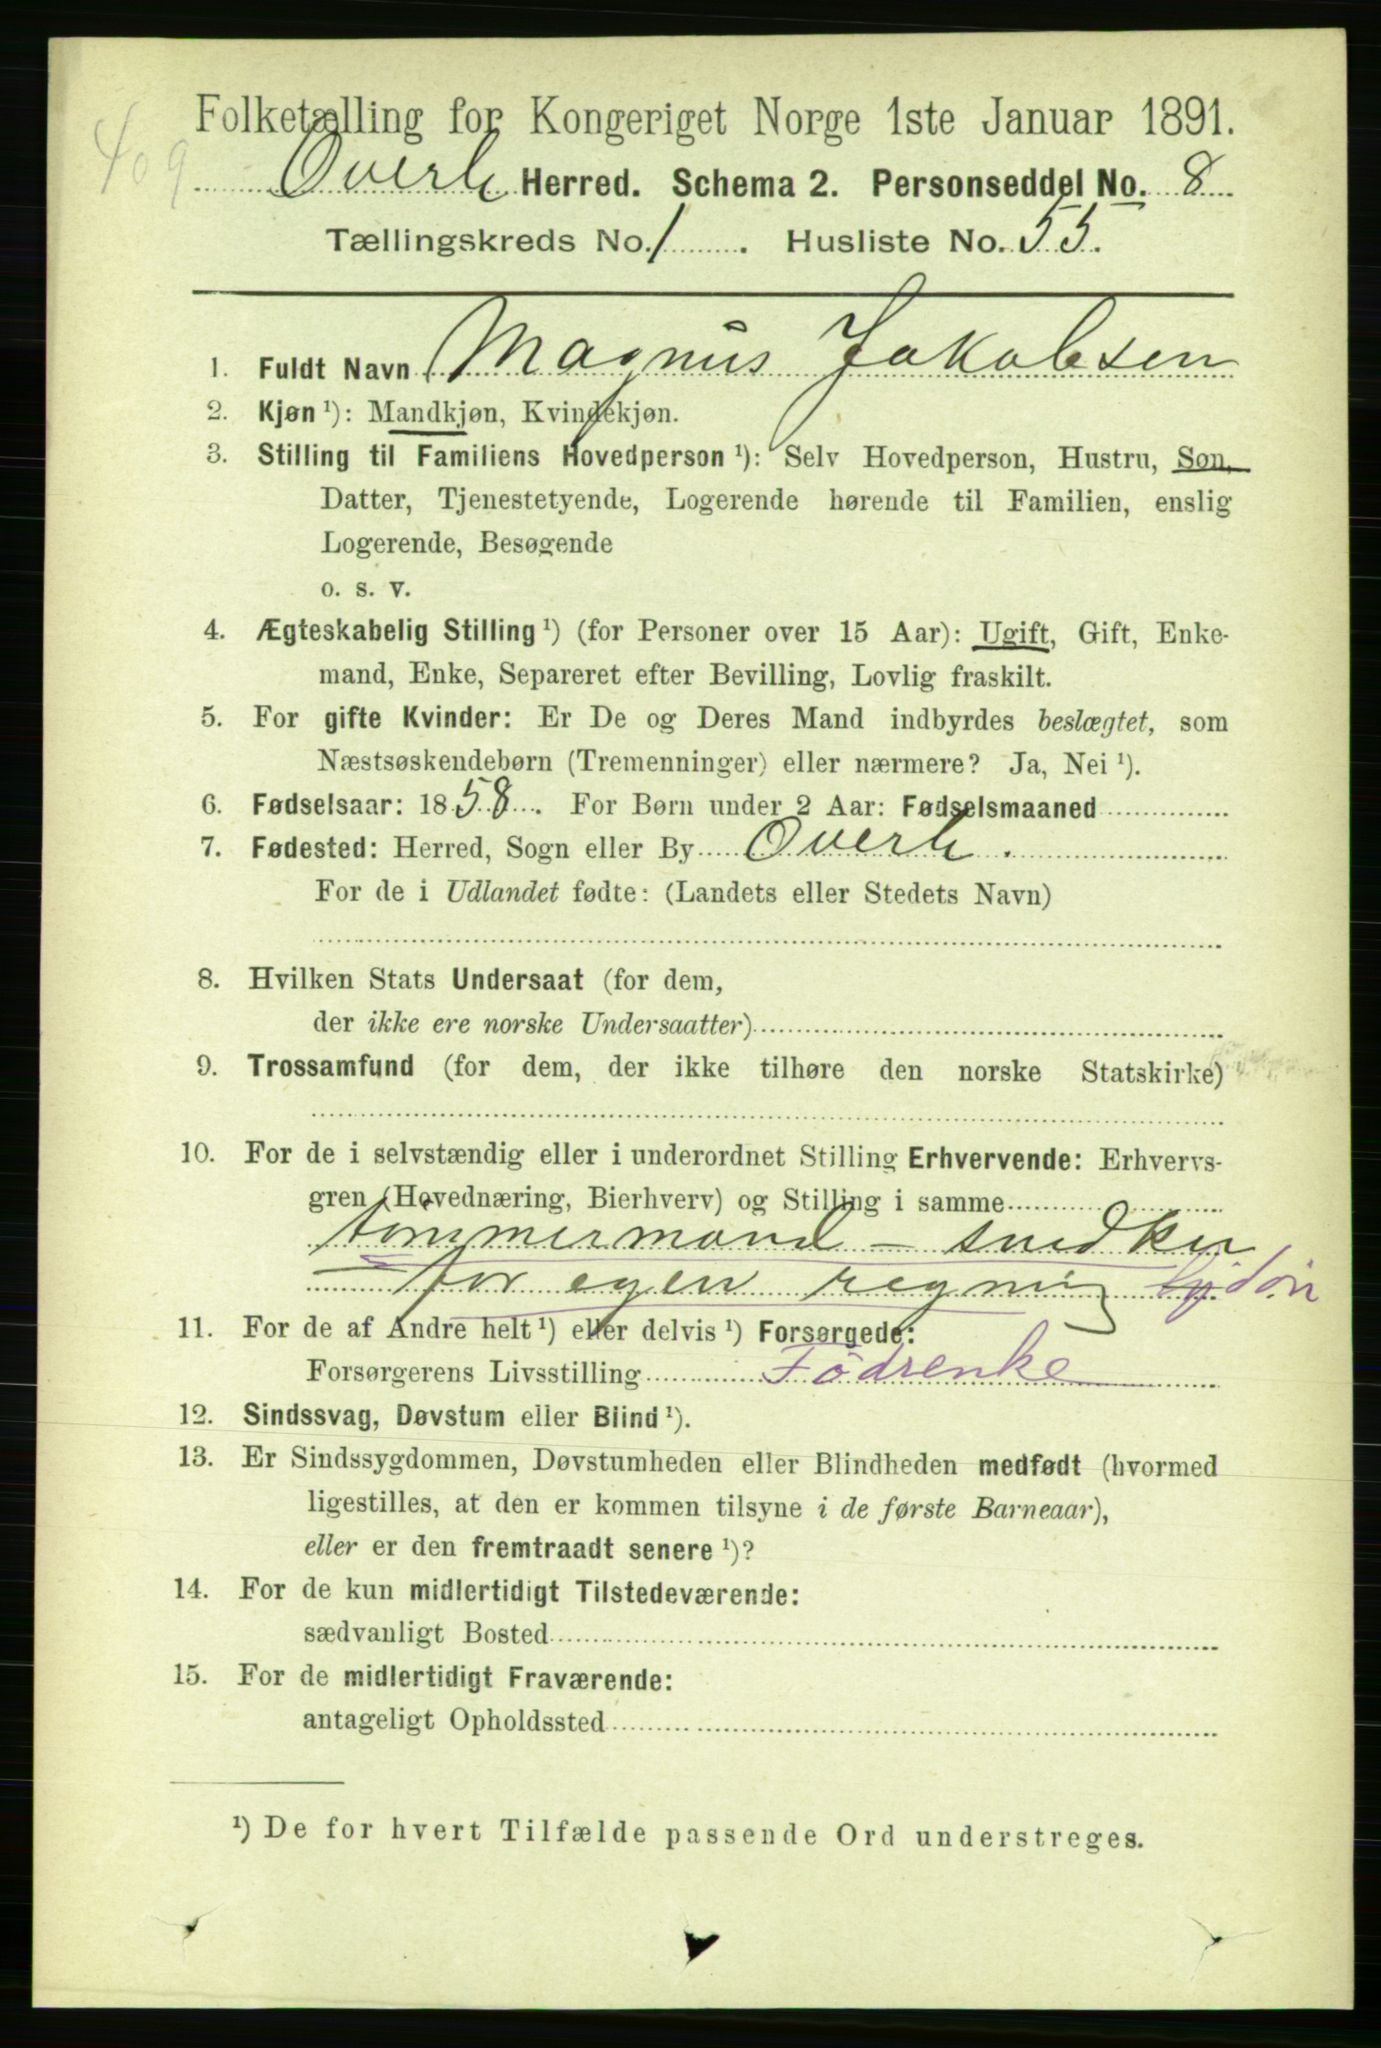 Folketælling for Kongeriget Norge 1ste Januar 1891.
409
Overh Herred. Schema 2. Personseddel No. 8
Tællingskreds No. 1 . Husliste No. 55.
1. Fuldt Navn Magnus Jakobsen
2. Kjøn ¹): Mandkjøn, Kvindekjøn.
3. Stilling til Familiens Hovedperson ¹): Selv Hovedperson, Hustru, Søn,
Datter, Tjenestetyende, Logerende hørende til Familien, enslig
Logerende, Besøgende
o. s. v.
4. Ægteskabelig Stilling ¹) (for Personer over 15 Aar): Ugift, Gift, Enke-
mand, Enke, Separeret efter Bevilling, Lovlig fraskilt.
5. For gifte Kvinder: Er De og Deres Mand indbyrdes beslægtet, som
Næstsøskendebørn (Tremenninger) eller nærmere? Ja, Nei ¹).
6. Fødselsaar: 1858. For Børn under 2 Aar: Fødselsmaaned
7. Fødested: Herred, Sogn eller By Overh.
For de i Udlandet fødte: (Landets eller Stedets Navn)
8. Hvilken Stats Undersaat (for dem,
der ikke ere norske Undersaatter)
9. Trossamfund (for dem, der ikke tilhøre den norske Statskirke)
10. For de i selvstændig eller i underordnet Stilling Erhvervende: Erhvervs-
gren (Hovednæring, Bierhverv) og Stilling i samme
tømmermand - snedker
for egen regning
11. For de af Andre helt ¹) eller delvis ¹) Forsørgede:
Forsørgerens Livsstilling Fødrenke
12. Sindssvag, Døvstum eller Blind ¹).
13. Er Sindssygdommen, Døvstumheden eller Blindheden medfødt (hvormed
ligestilles, at den er kommen tilsyne i de første Barneaar),
eller er den fremtraadt senere ¹)?
14. For de kun midlertidigt Tilstedeværende:
sædvanligt Bosted
15. For de midlertidigt Fraværende:
antageligt Opholdssted
¹) De for hvert Tilfælde passende Ord understreges.